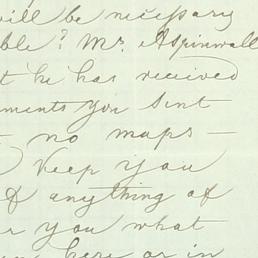 will be necessary
ble? Mr. Aspinwall
t he has received
ments you sent
- no maps -
keep you
of anything of
r you what
here or in